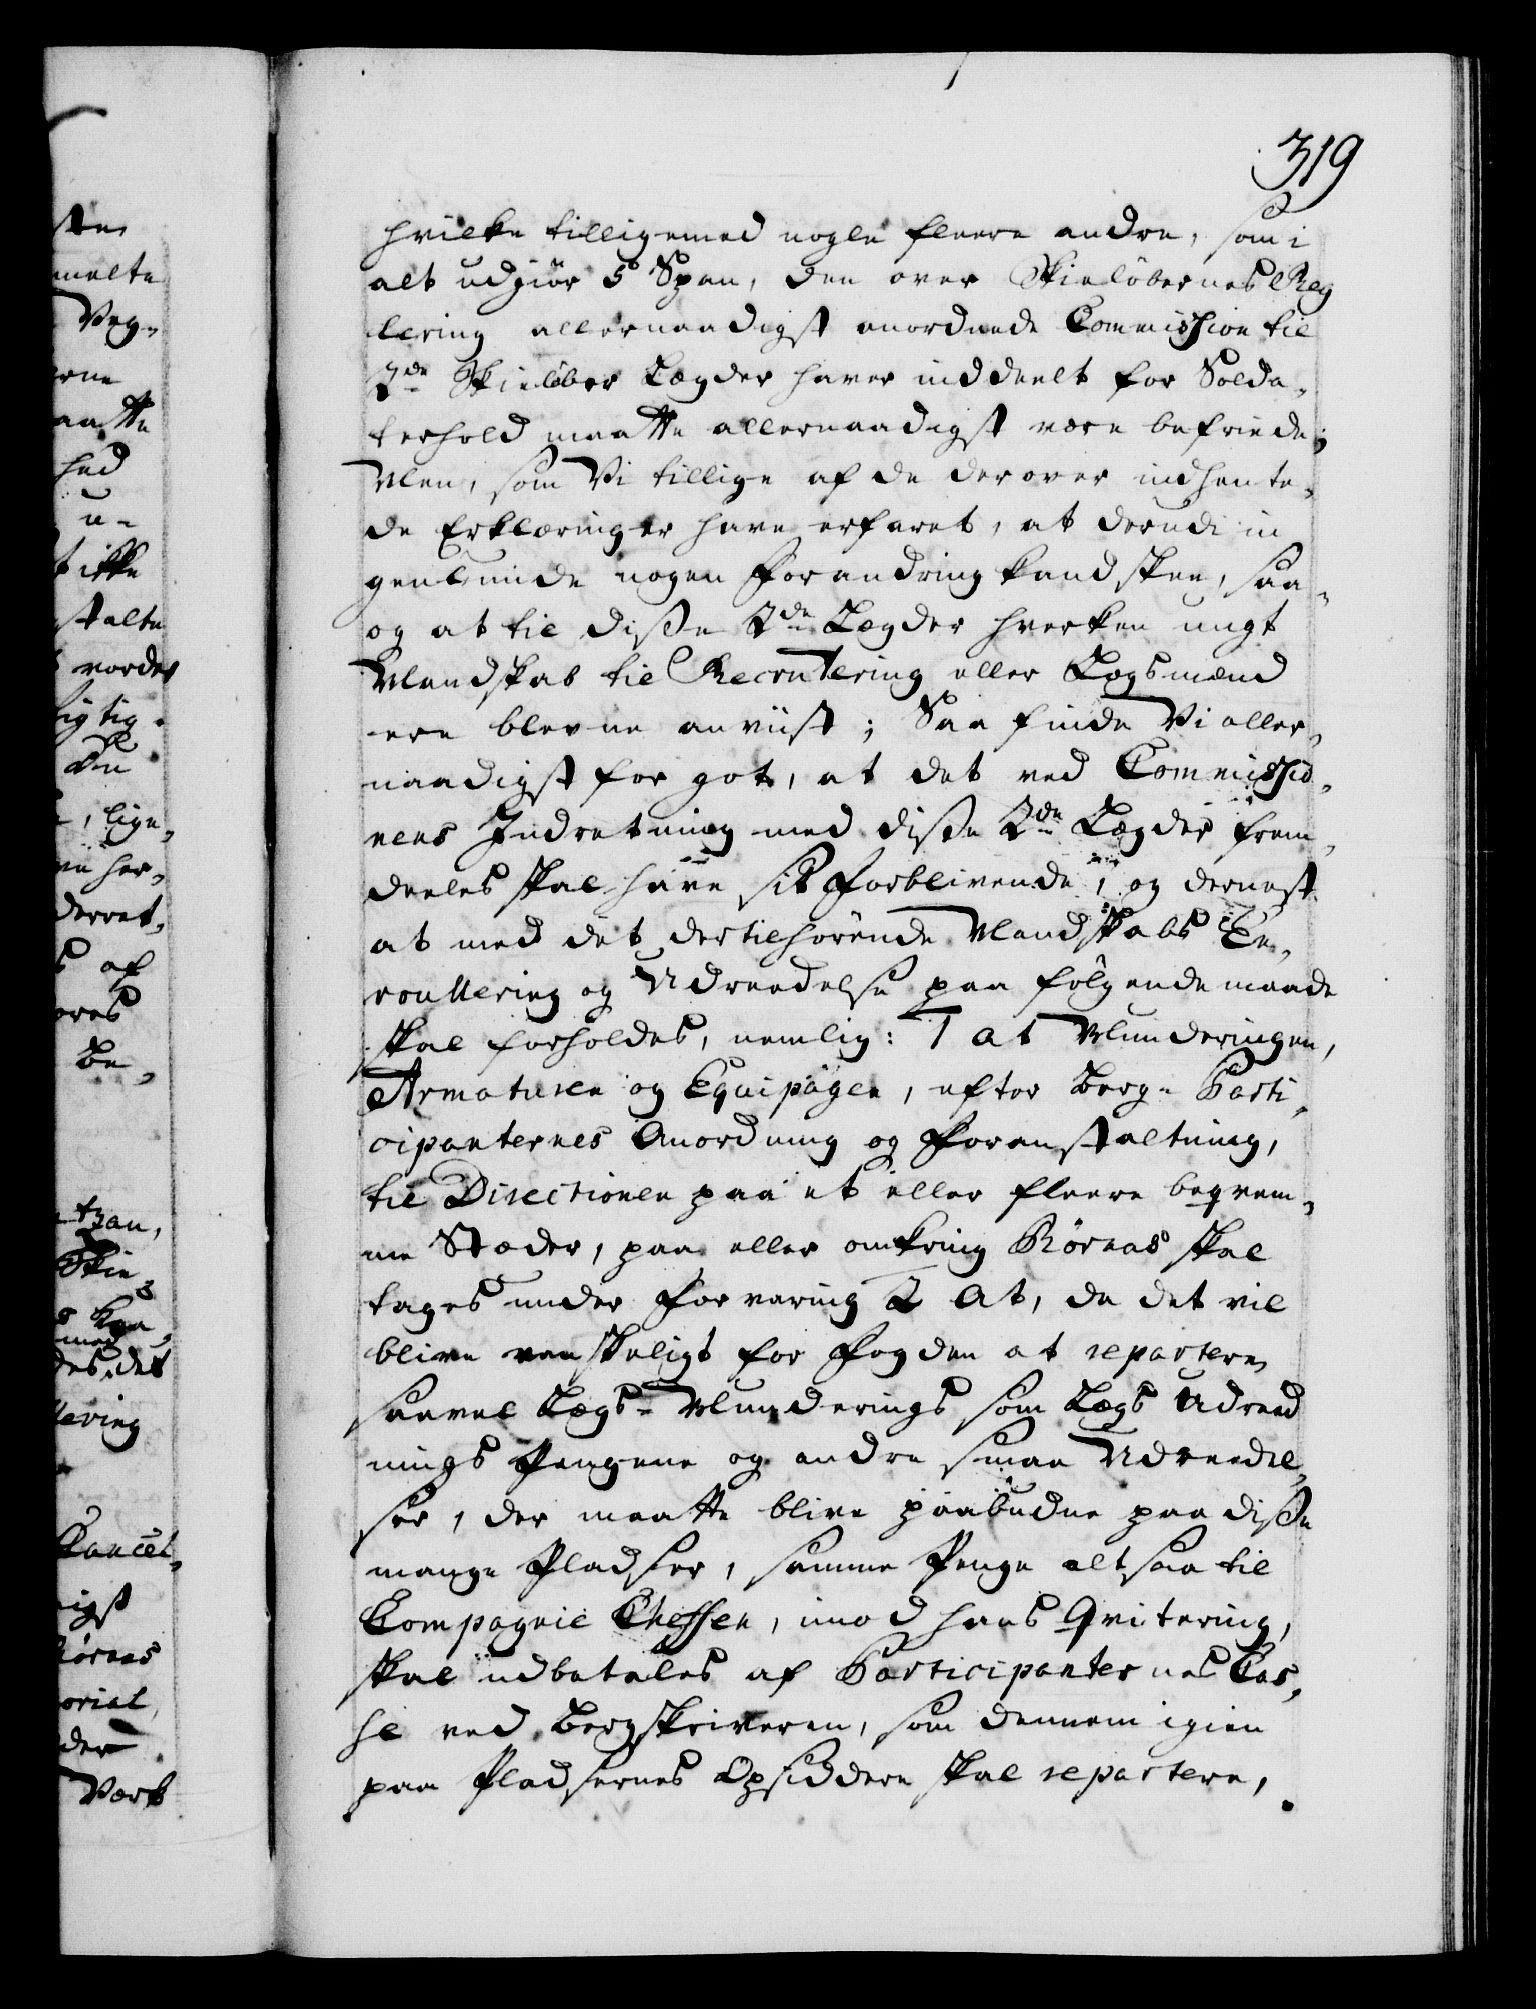 319
hvilke tilligemed nogle fleere andre, som i
alt udgiør 5 Span, den over Skieløbernes Reg
lering allernaadigst anordnede Commission til
2de Skieløber Lægder haver inddeelt for Solda-
terhold maatte allernaadigst være befriede;
Men, som Vi tillige af de derover indhente-
de Erklæringer have erfaret, at derudi in
genlunde nogen Forandring kand skee, saa-
og at til disse 2de Lægder hverken ungt
Mandskab til Recrutering eller Lægsmænd
ere blevne anviist; Saa finde Vi aller-
naadigst for got, at det ved Commissio-
nens Indretning med disse 2de Lægder frem-
deeles skal have sit Forblivende, og dernest
at med det dertilhørende Mandskabs En-
roullering og Udreedelse paa følgende maade
skal forholdes, nemlig: 1 at Munderingen,
Armaturen og Equipagen, efter Berg- Parti-
cipanternes Anordning og Foranstaltning,
til Directionen paa et eller fleere beqvem-
me Stæder, paa eller omkring Røraas skal
tages under Forvaring 2 At, da det vil
blive vanskeligt for Fogden at repartere
saavel Lægs- Munderings som Lægs Udreed
nings Pengene og andre smaa Udreedel-
ser, der maatte blive paabudne paa disse
mange Pladser, samme Penge altsaa til
Compagnie Cheffen, imod hans Qvitering,
skal udbetales af Participanternes Cas-
se ved Bergskriveren, som dennem igien
paa Pladsernes Opsiddere skal repartere,